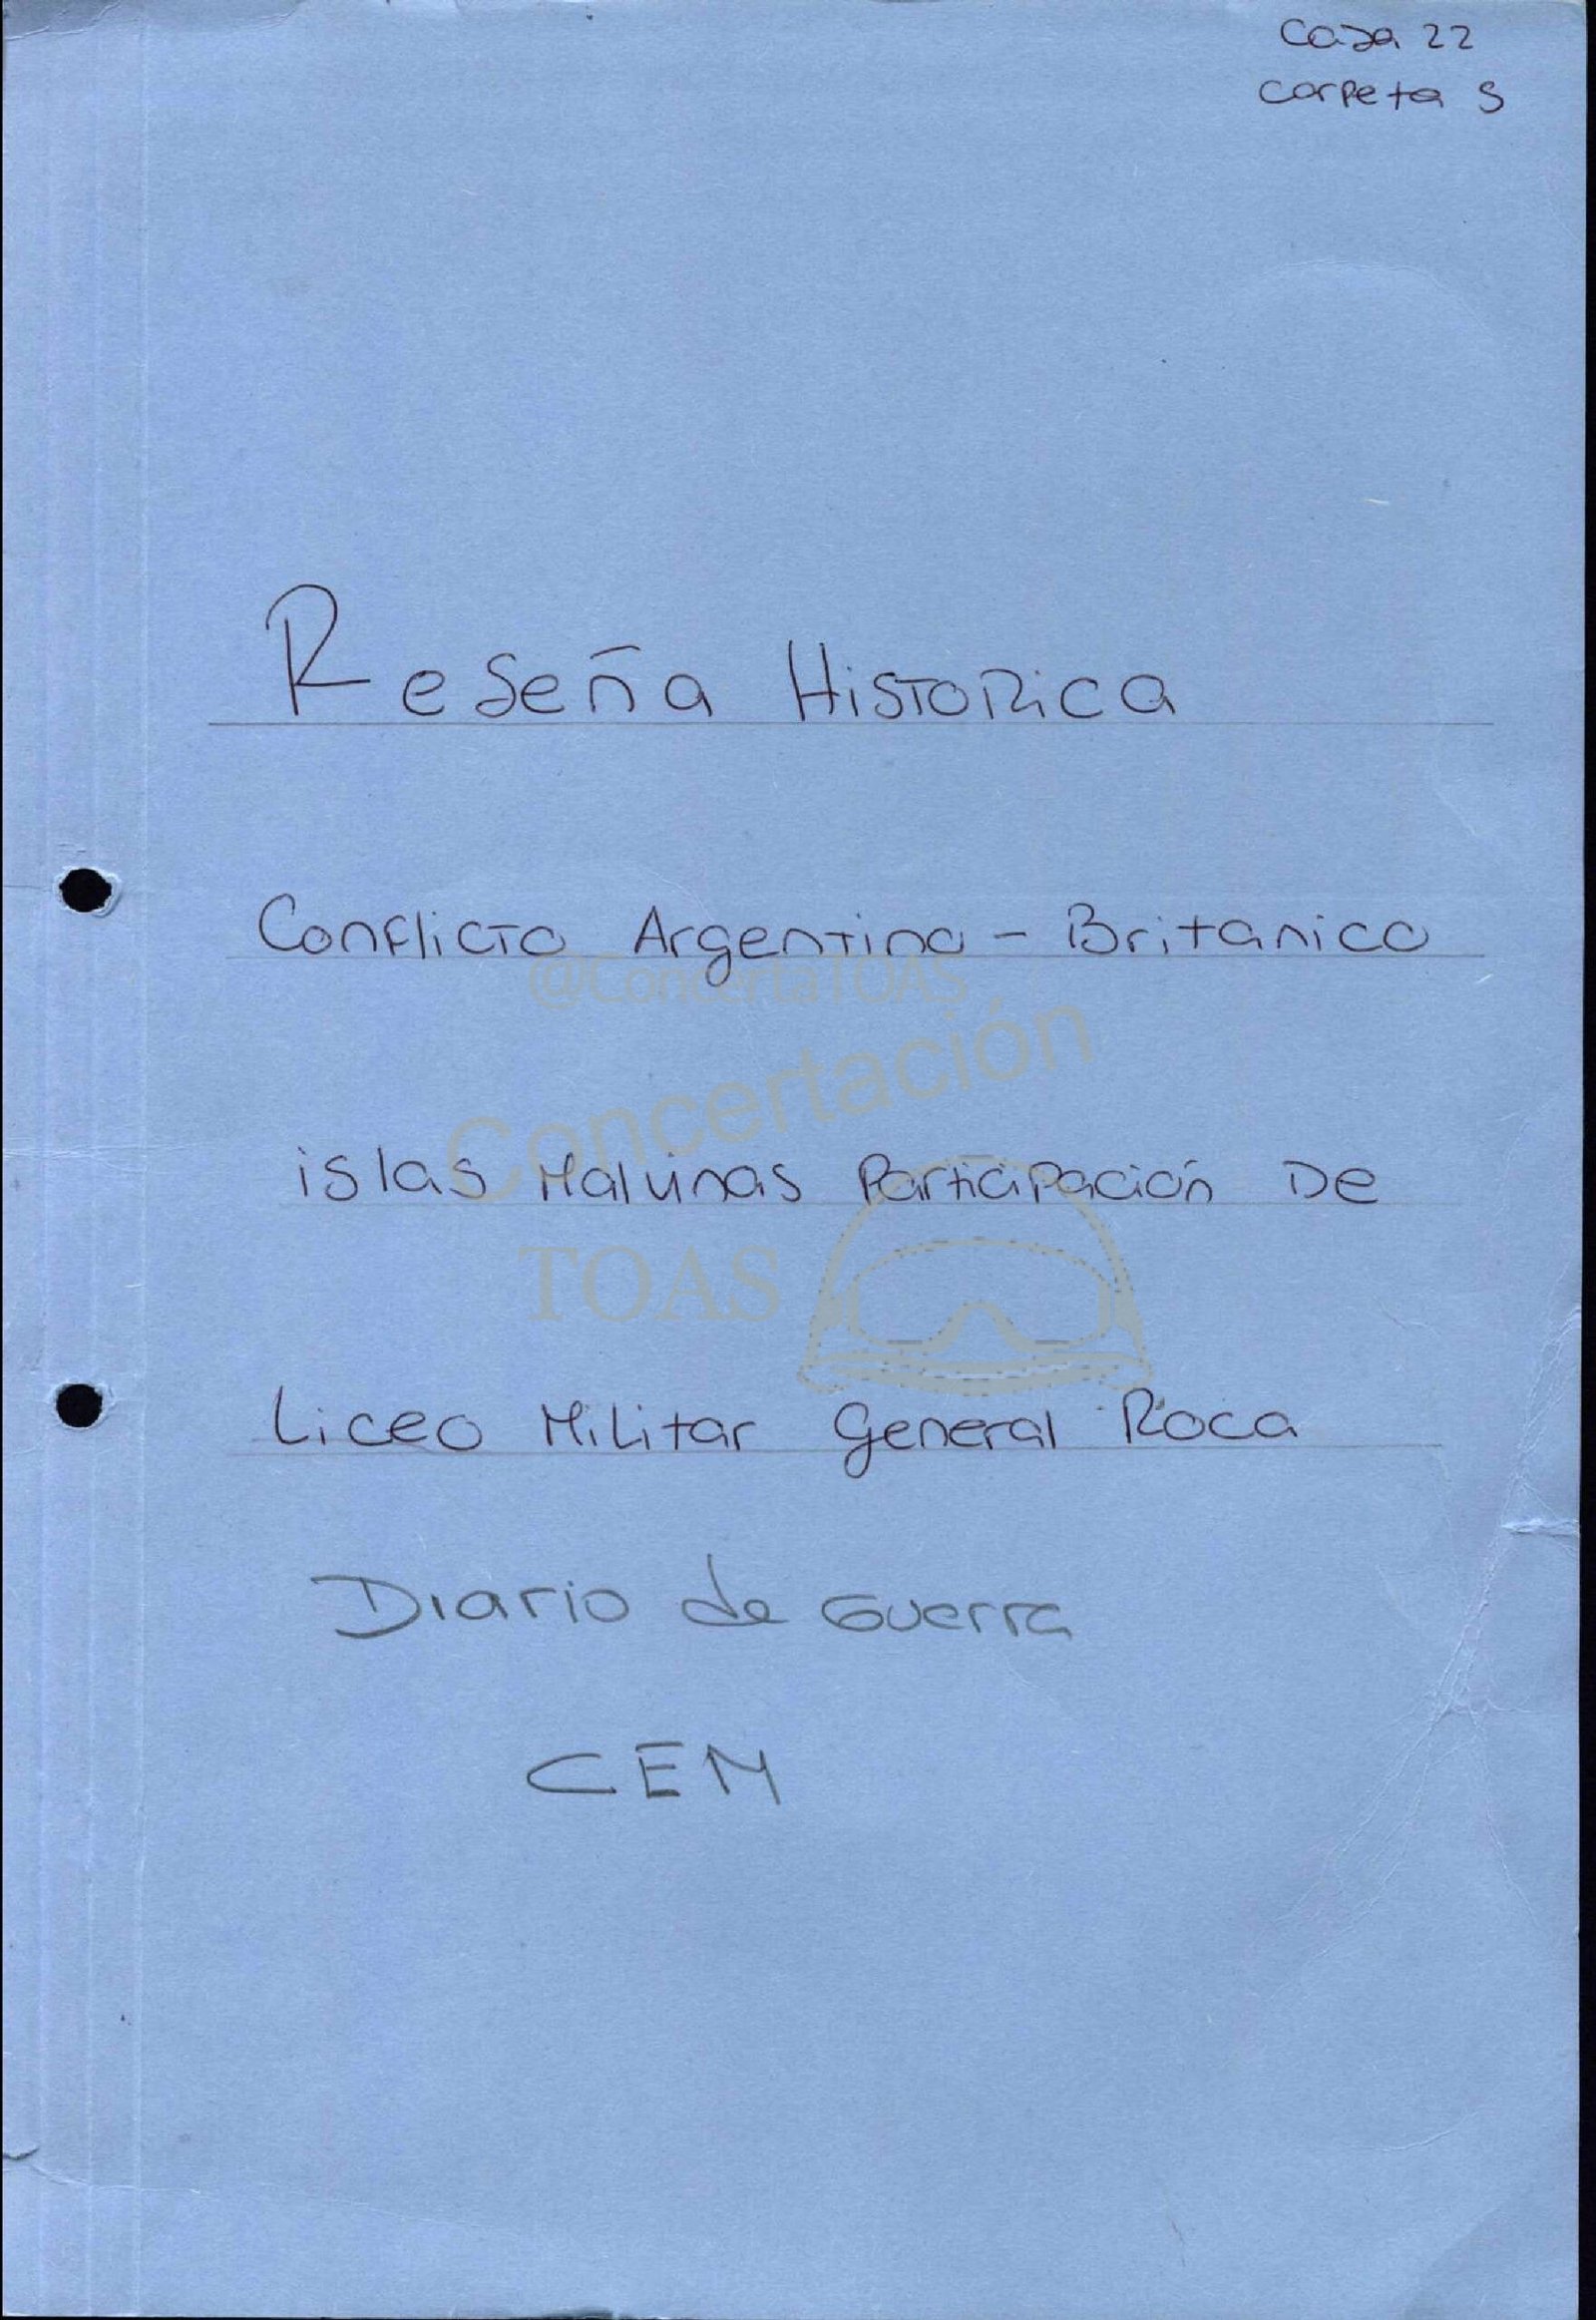 Caja 22
Carpeta 5
Reseña Historica
Conflicto Argentino - Britanico
@ConcertaTOAS
Concertación
islas Malvinas Participación De
TOAS
Liceo Militar General Roca
Diario de Guerra
CEM